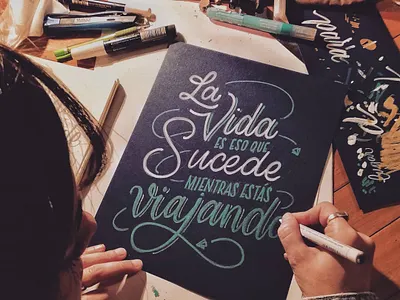 La
Vida
ES ESO QUE
Sucede
MIENTRAS ESTÁS
viajando